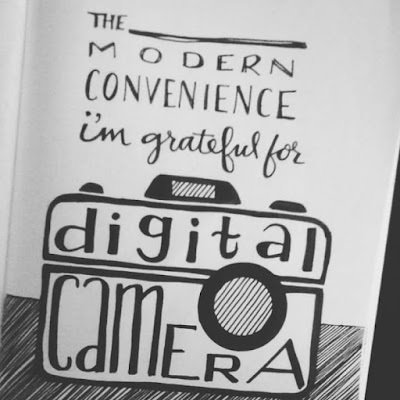 THE
MODERN
CONVENIENCE
i'm grateful for
digital
CAMERA